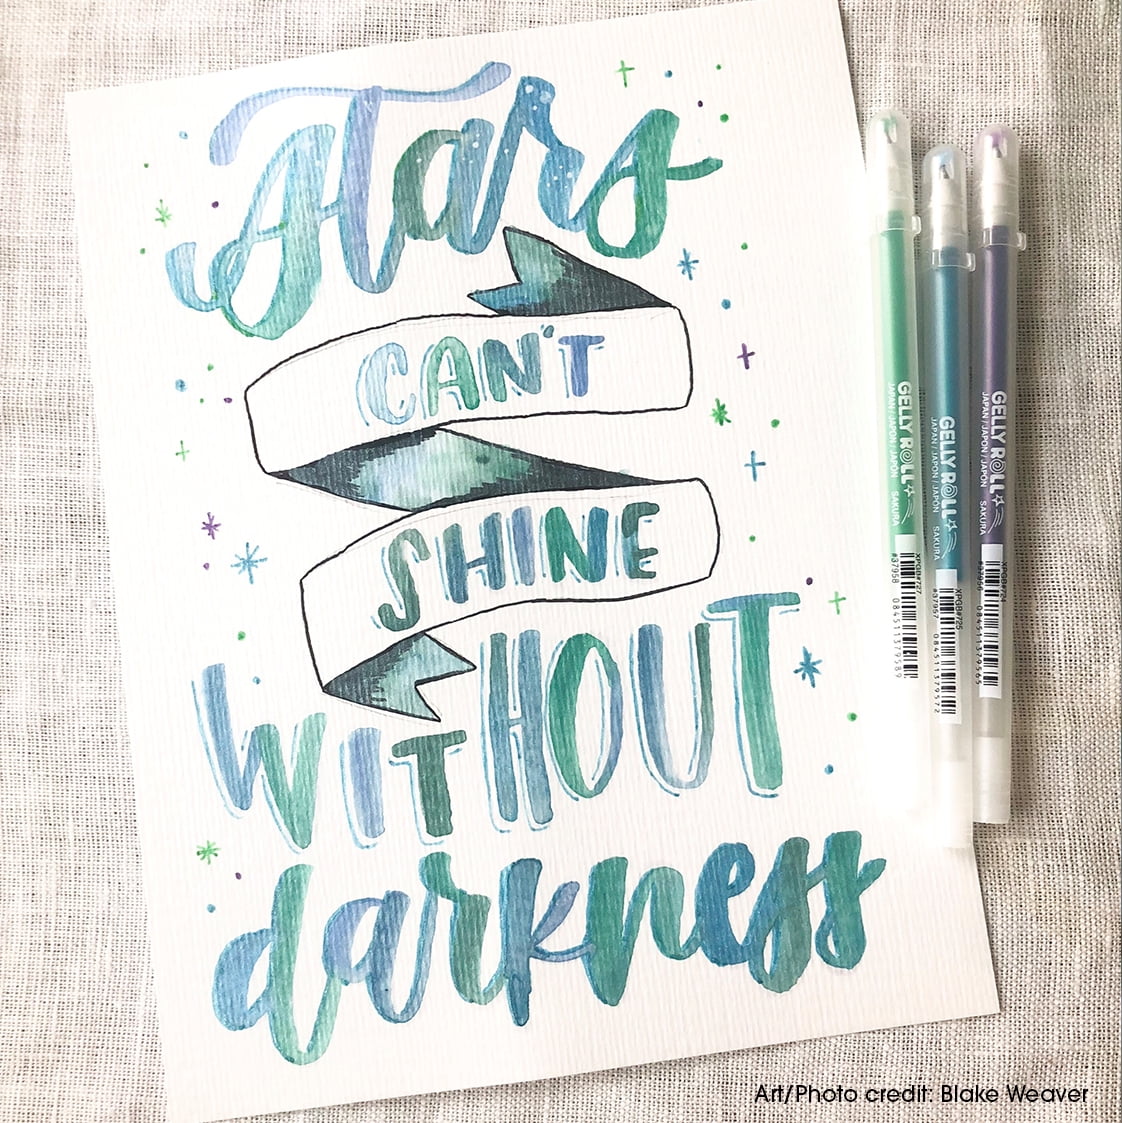 Stars
CAN'T
SHINE
WITHOUT
darkness
GELLY ROLL
JAPAN / JAPON / JAPÓN SAKURA
XPGB#727
#37958 084511379589
GELLY ROLL
JAPAN / JAPON / JAPÓN SAKURA
XPGB#725
#37957 084511379572
GELLY ROLL
JAPAN / JAPON / JAPÓN SAKURA
XPGB#724
#37956 084511379565
Art/Photo credit: Blake Weaver